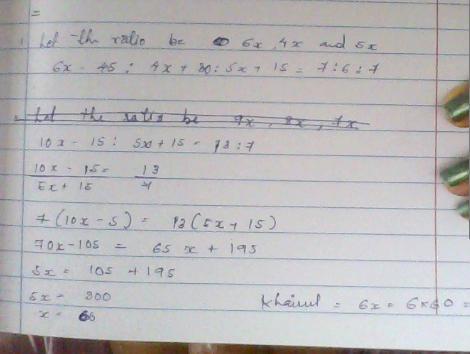 =
Let the ratio be 6x, 4x and 5x
6x - 45 : 4x + 30 : 5x + 15 = 7 : 6 : 7
Let the ratio be 7x, 8x, 7x
10x - 15 : 5x + 15 = 13 : 7
10x - 15 = 13
5x + 15 7
7 (10x - 5) = 13 (5x + 15)
70x - 105 = 65 x + 195
5x = 105 + 195
5x = 300
x = 60
Khairul = 6x = 6x60 =